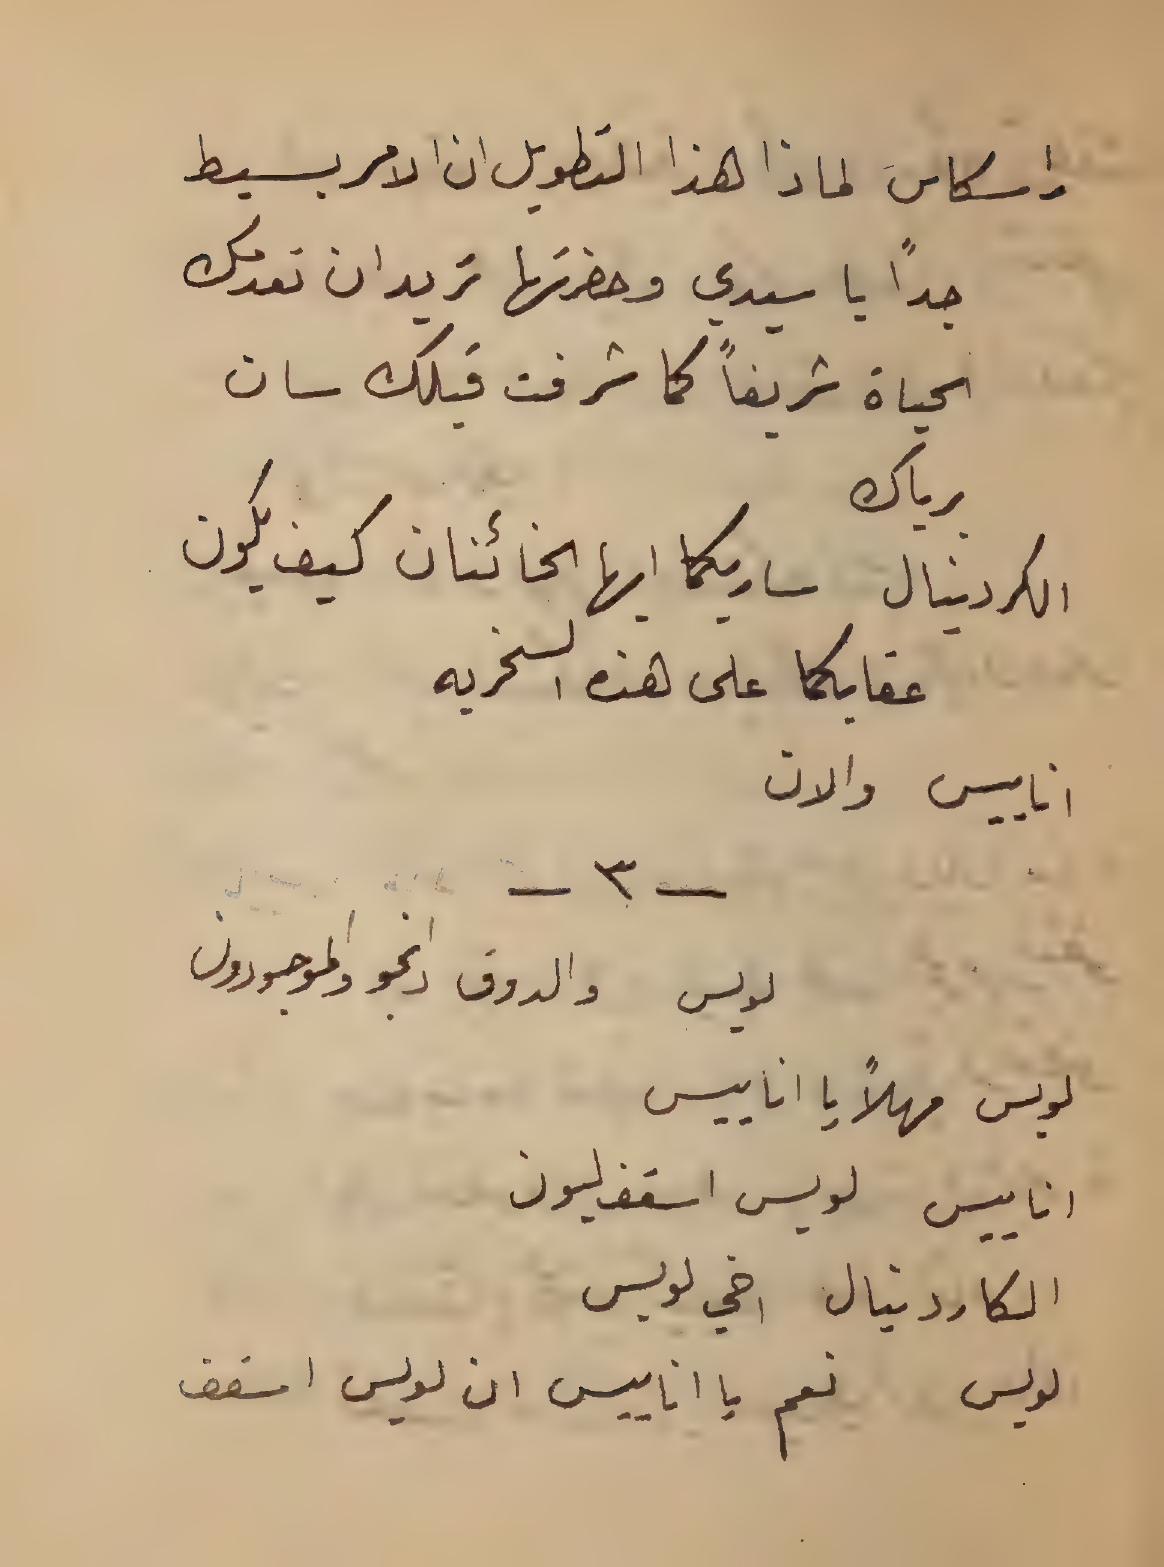 داسكاس لماذا هذا التطويل ان الامر بسيط
جداً يا سيدي وحضرتها تريد ان تعدمك
الحياة شريفاً كما شرفت قبلك سان
برياك
الكردينال ساريكما ايها الخائنان كيف يكون
عقابكما على هذه السخريه
اناييس والان
— ٣ —
لويس والدوق دانجو والموجودون
لويس مهلاً يا اناييس
اناييس لويس اسقف ليون
الكاردينال اخي لويس
لويس نعم يا اناييس ان لويس اسقف